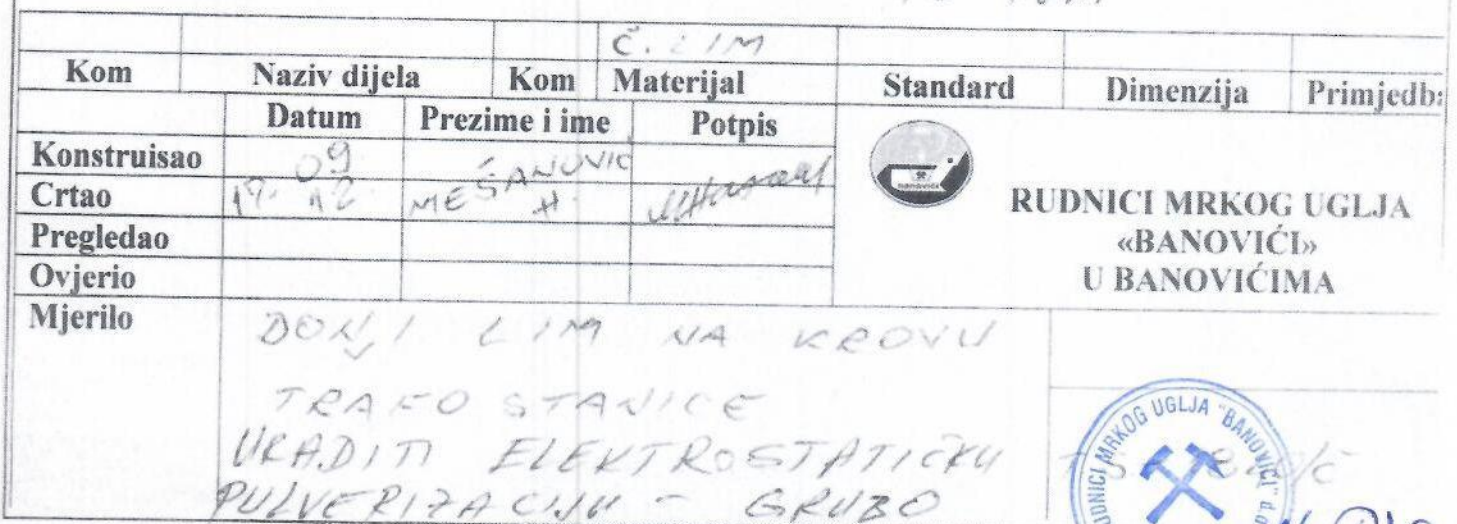 Č. LIM
Kom Naziv dijela Kom Materijal Standard Dimenzija Primjedba
Datum Prezime i ime Potpis
Konstruisao 09 MEŠANOVIĆ
Crtao 17. 12. H.
Pregledao
Ovjerio
RUDNICI MRKOG UGLJA
«BANOVIĆI»
U BANOVIĆIMA
Mjerilo DONJI LIM NA KROVU
TRAFO STANICE
URADITI ELEKTROSTATIČKU
PULVERIZACIJU - GRUBO
RUDNICI MRKOG UGLJA "BANOVIĆI" d.d